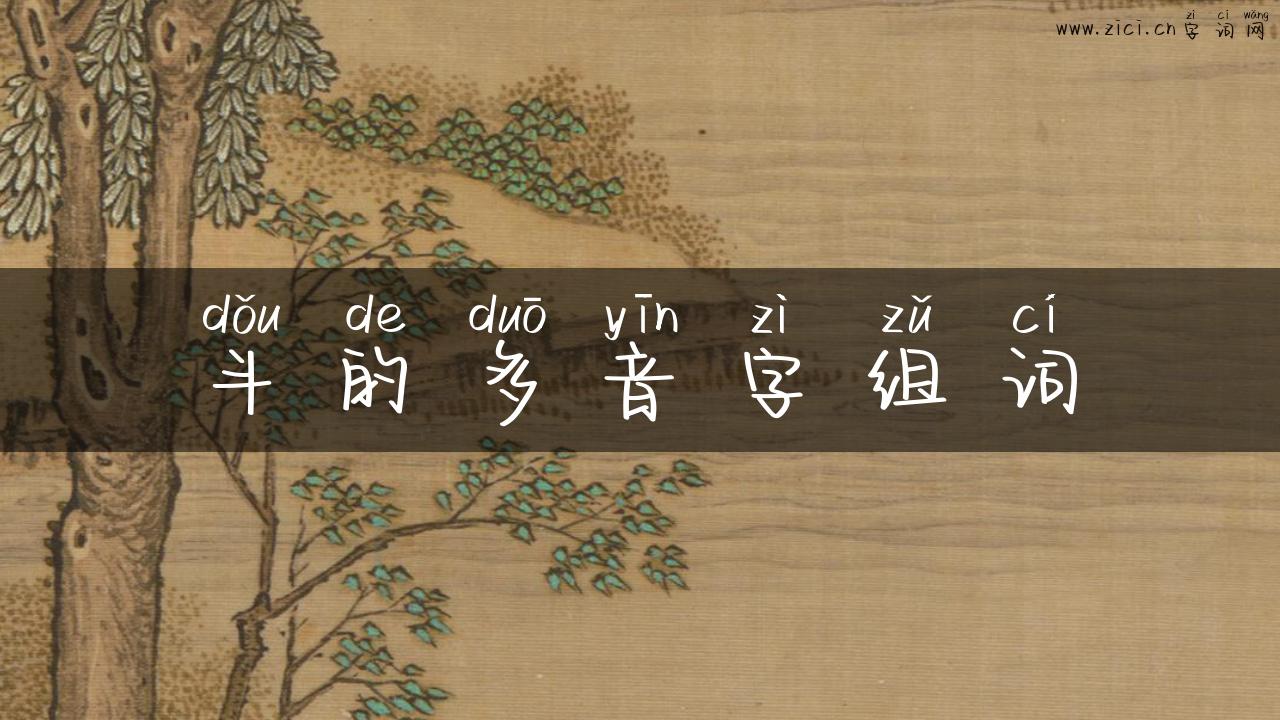 zì cí wǎng
www.zici.cn字词网
dǒu de duō yīn zì zǔ cí
斗的多音字组词